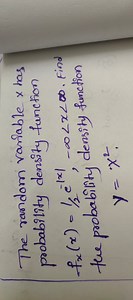 The random variable x has
probability density function
fx(x) = 1/2 e^-|x|, -∞<x<∞. Find
the probability density function
y = x².